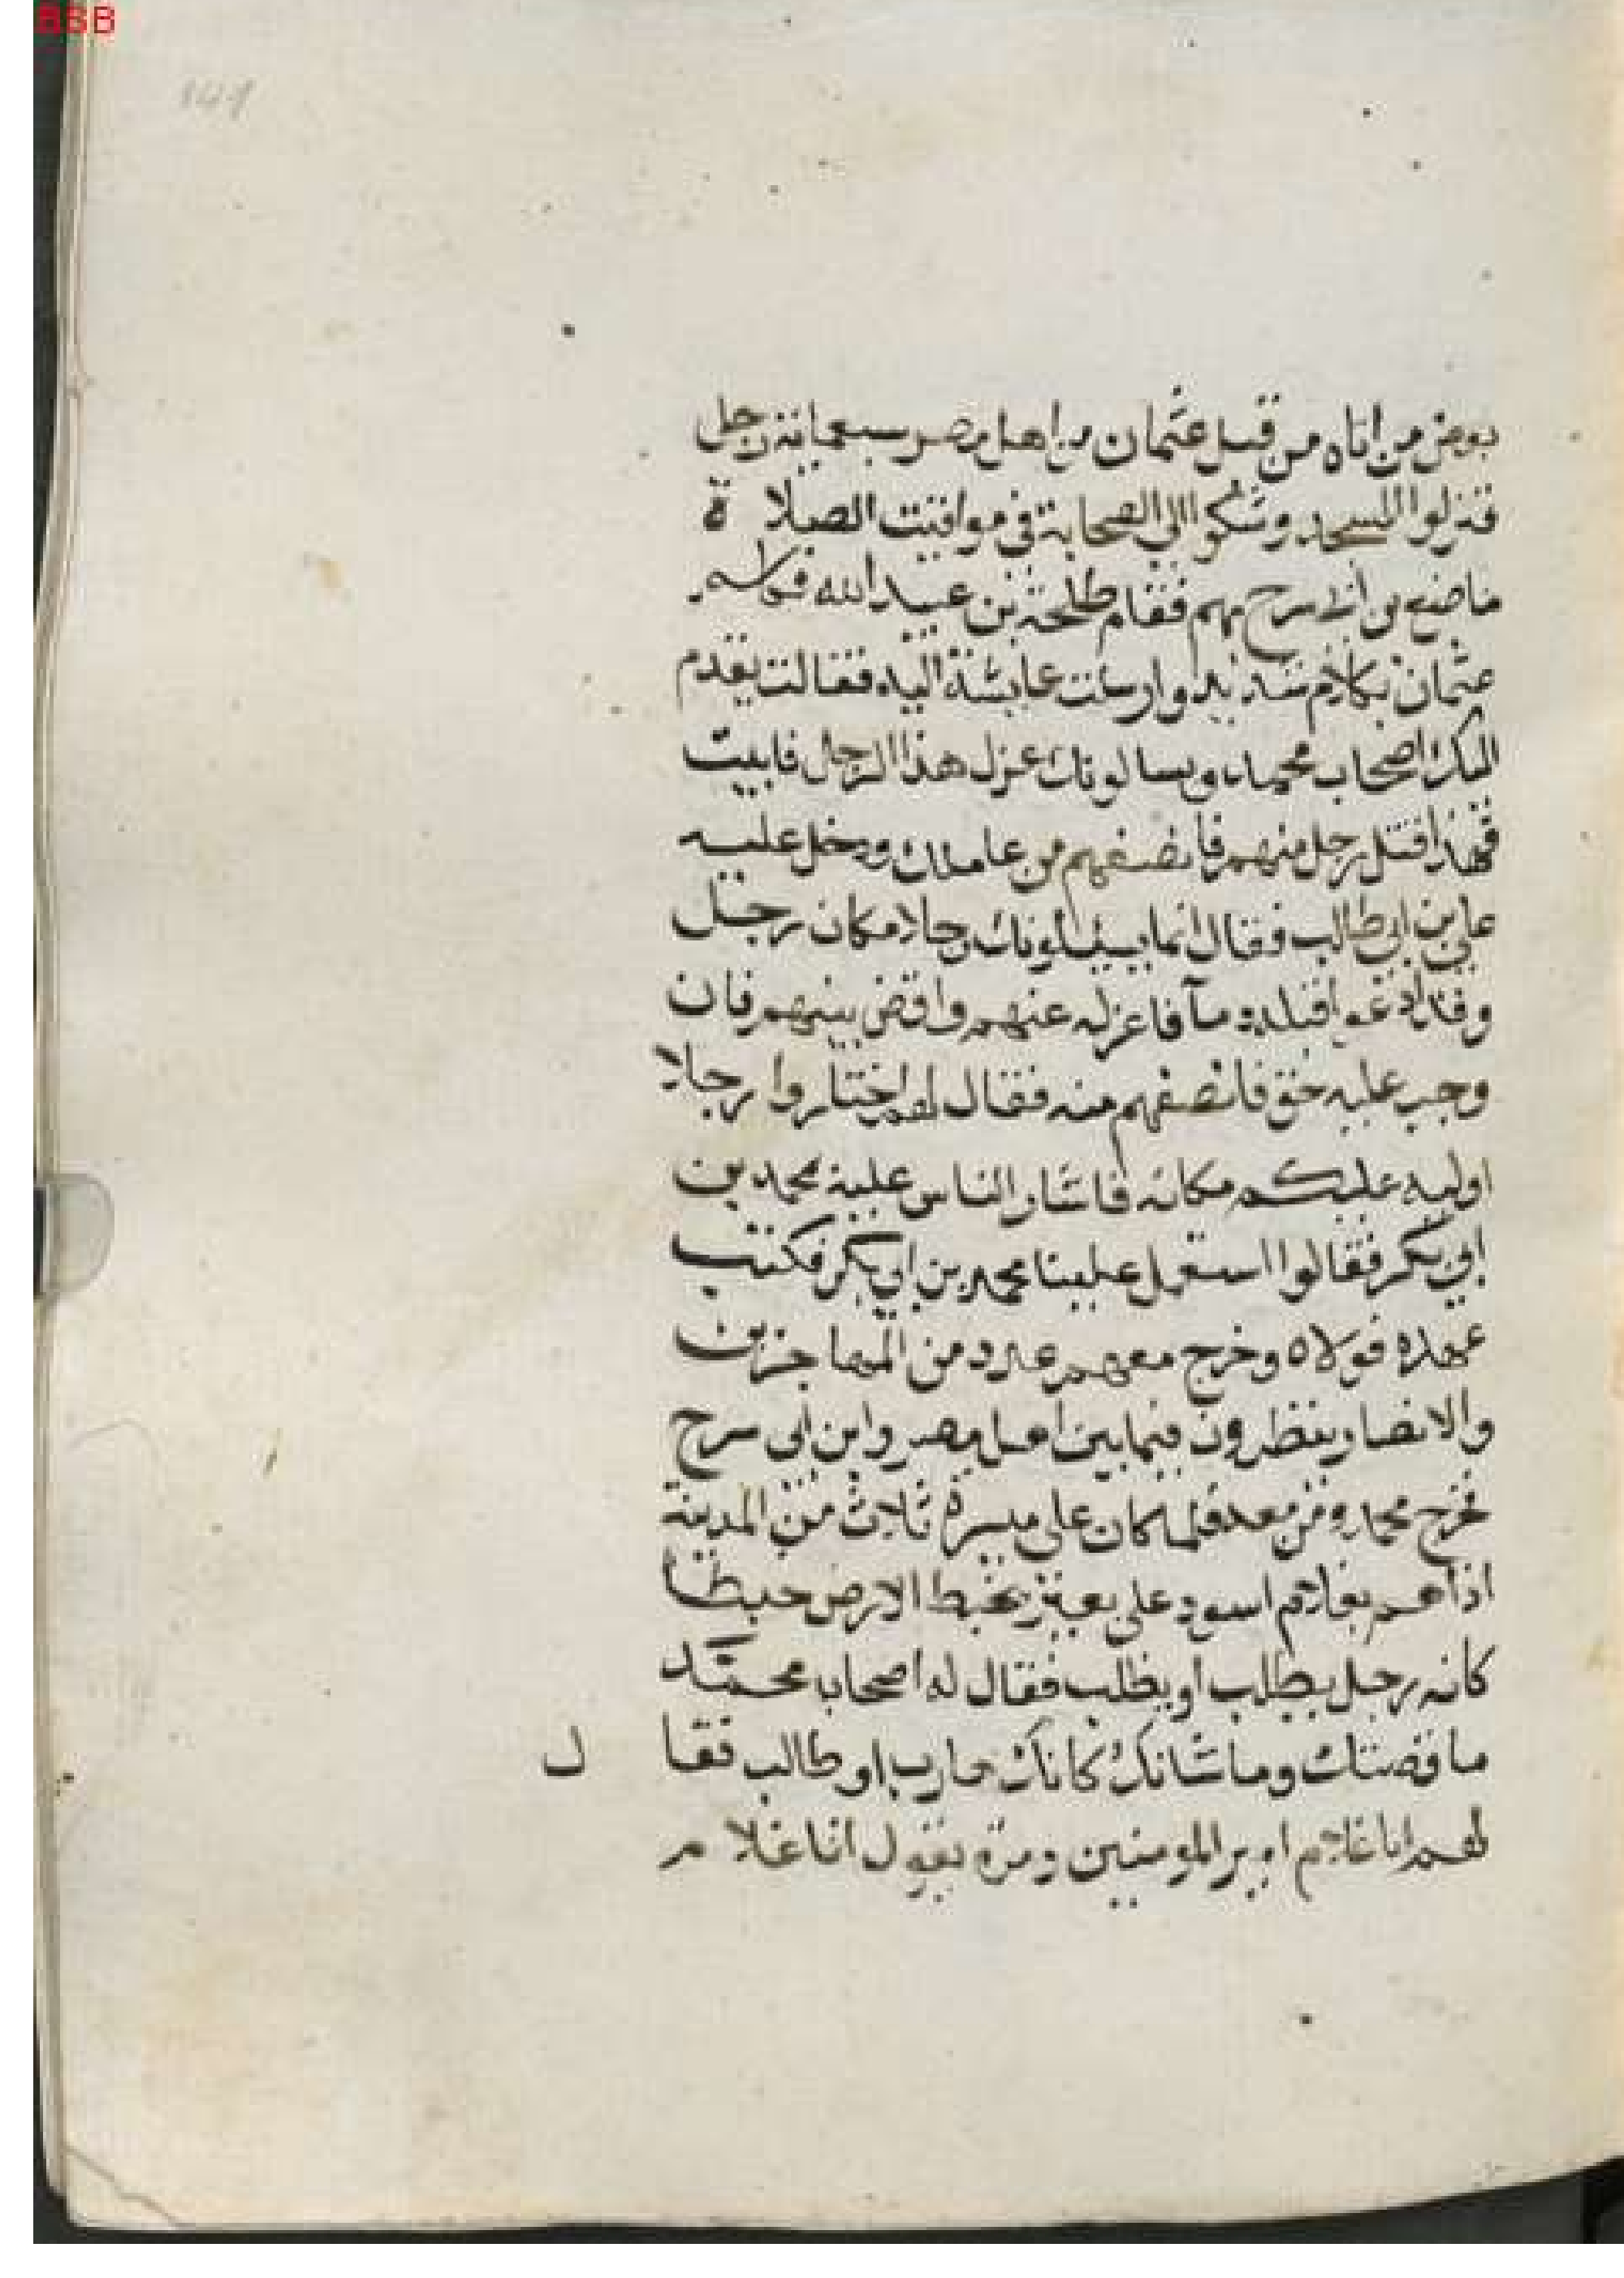 BSB
149
بعض من اتاه من قبل عثمان من اهل مصر سبعمائة رجل
فنزلوا المسجد وشكوا الى الصحابة في مواقيت الصلاة
ما صنع بن ابي سرح بهم فقام طلحة بن عبيد الله
عثمان بكلام شديد وارسلت عايشة اليه فقالت تقدم
اليك اصحاب محمد ويسالونك عزل هذا الرجل فابيت
فهذا قتل رجل منهم فانصفهم من عاملك ودخل عليه
علي بن ابي طالب فقال انما يسئلونك رجلا مكان رجل
وقد ادعوا قبله دما فاعزله عنهم واقض بينهم فان
وجب عليه حق فانصفهم منه فقال لهم اختاروا رجلا
اوليه عليكم مكانه فاشار الناس عليه محمد بن
ابي بكر فقالوا استعمل علينا محمد بن ابي بكر فكتب
عهده فولاه وخرج معهم عدد من المهاجرين
والانصار ينظرون فيما بين اهل مصر وابن ابي سرح
فخرج محمد ومن معه فلما كان على مسيرة ثلاث من المدينة
اذا هم بغلام اسود على بعير يخبط الارض خبطا
كانه رجل يطلب او يطلب فقال له اصحاب محمد
ما قصتك وما شانك كانك هارب او طالب فقال
لهم انا غلام امير المومنين ومرة يقول انا غلام